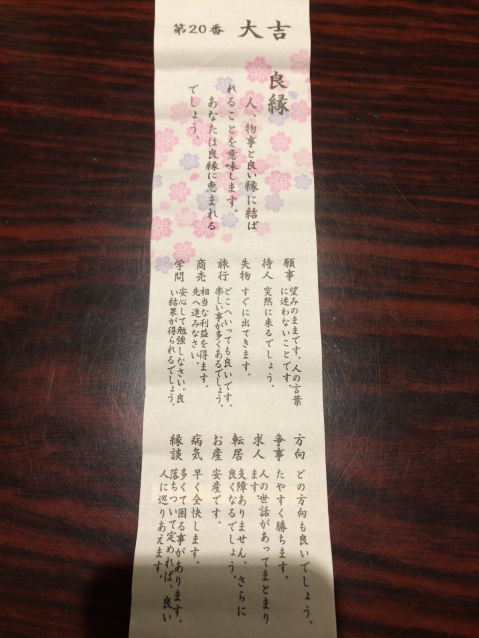 第20番 大吉
良縁
人、物事と良い縁に結ば
れることを意味します。
あなたは良縁に恵まれる
でしょう。
願事 望みのままです。人の言葉
に迷わないことです。
待人 突然に来るでしょう。
失物 すぐに出てきます。
旅行 どこへいっても良いです。
楽しい事が多くあるでしょう。
商売 相当な利益を得ます。
先へ進みなさい。
学問 安心して勉強しなさい。良
い結果が得られるでしょう。
方向 どの方向も良いでしょう。
争事 たやすく勝ちます。
求人 人の世話があってまとまり
ます。
転居 支障ありません。さらに
良くなるでしょう。
お産 安産です。
病気 早く全快します。
縁談 多くて困る事があります。
落ちついて定めれば、良い
人に巡りあえます。